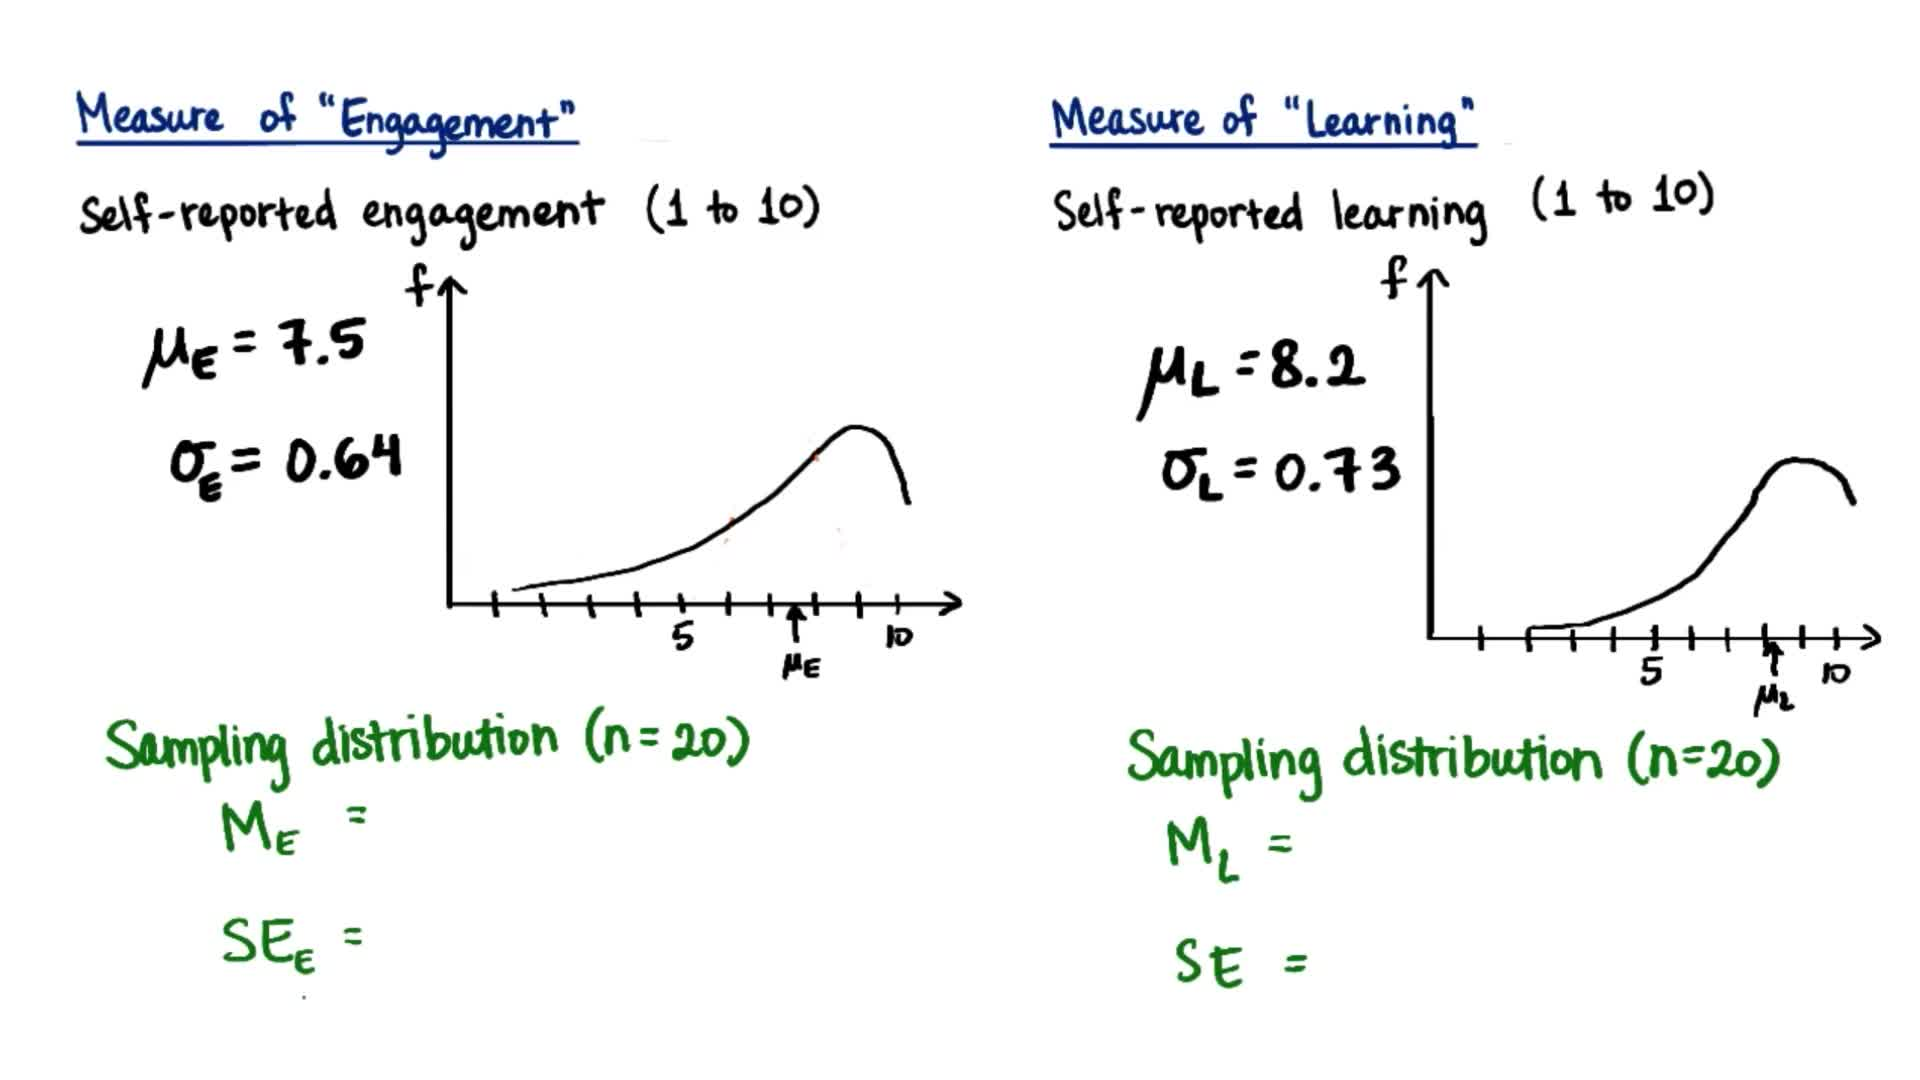 Measure of "Engagement"
Self-reported engagement (1 to 10)
f
μE = 7.5
σE = 0.64
5
10
μE
Sampling distribution (n=20)
ME =
SEE =
Measure of "Learning"
Self-reported learning (1 to 10)
f
μL = 8.2
σL = 0.73
5
10
μL
Sampling distribution (n=20)
ML =
SE =